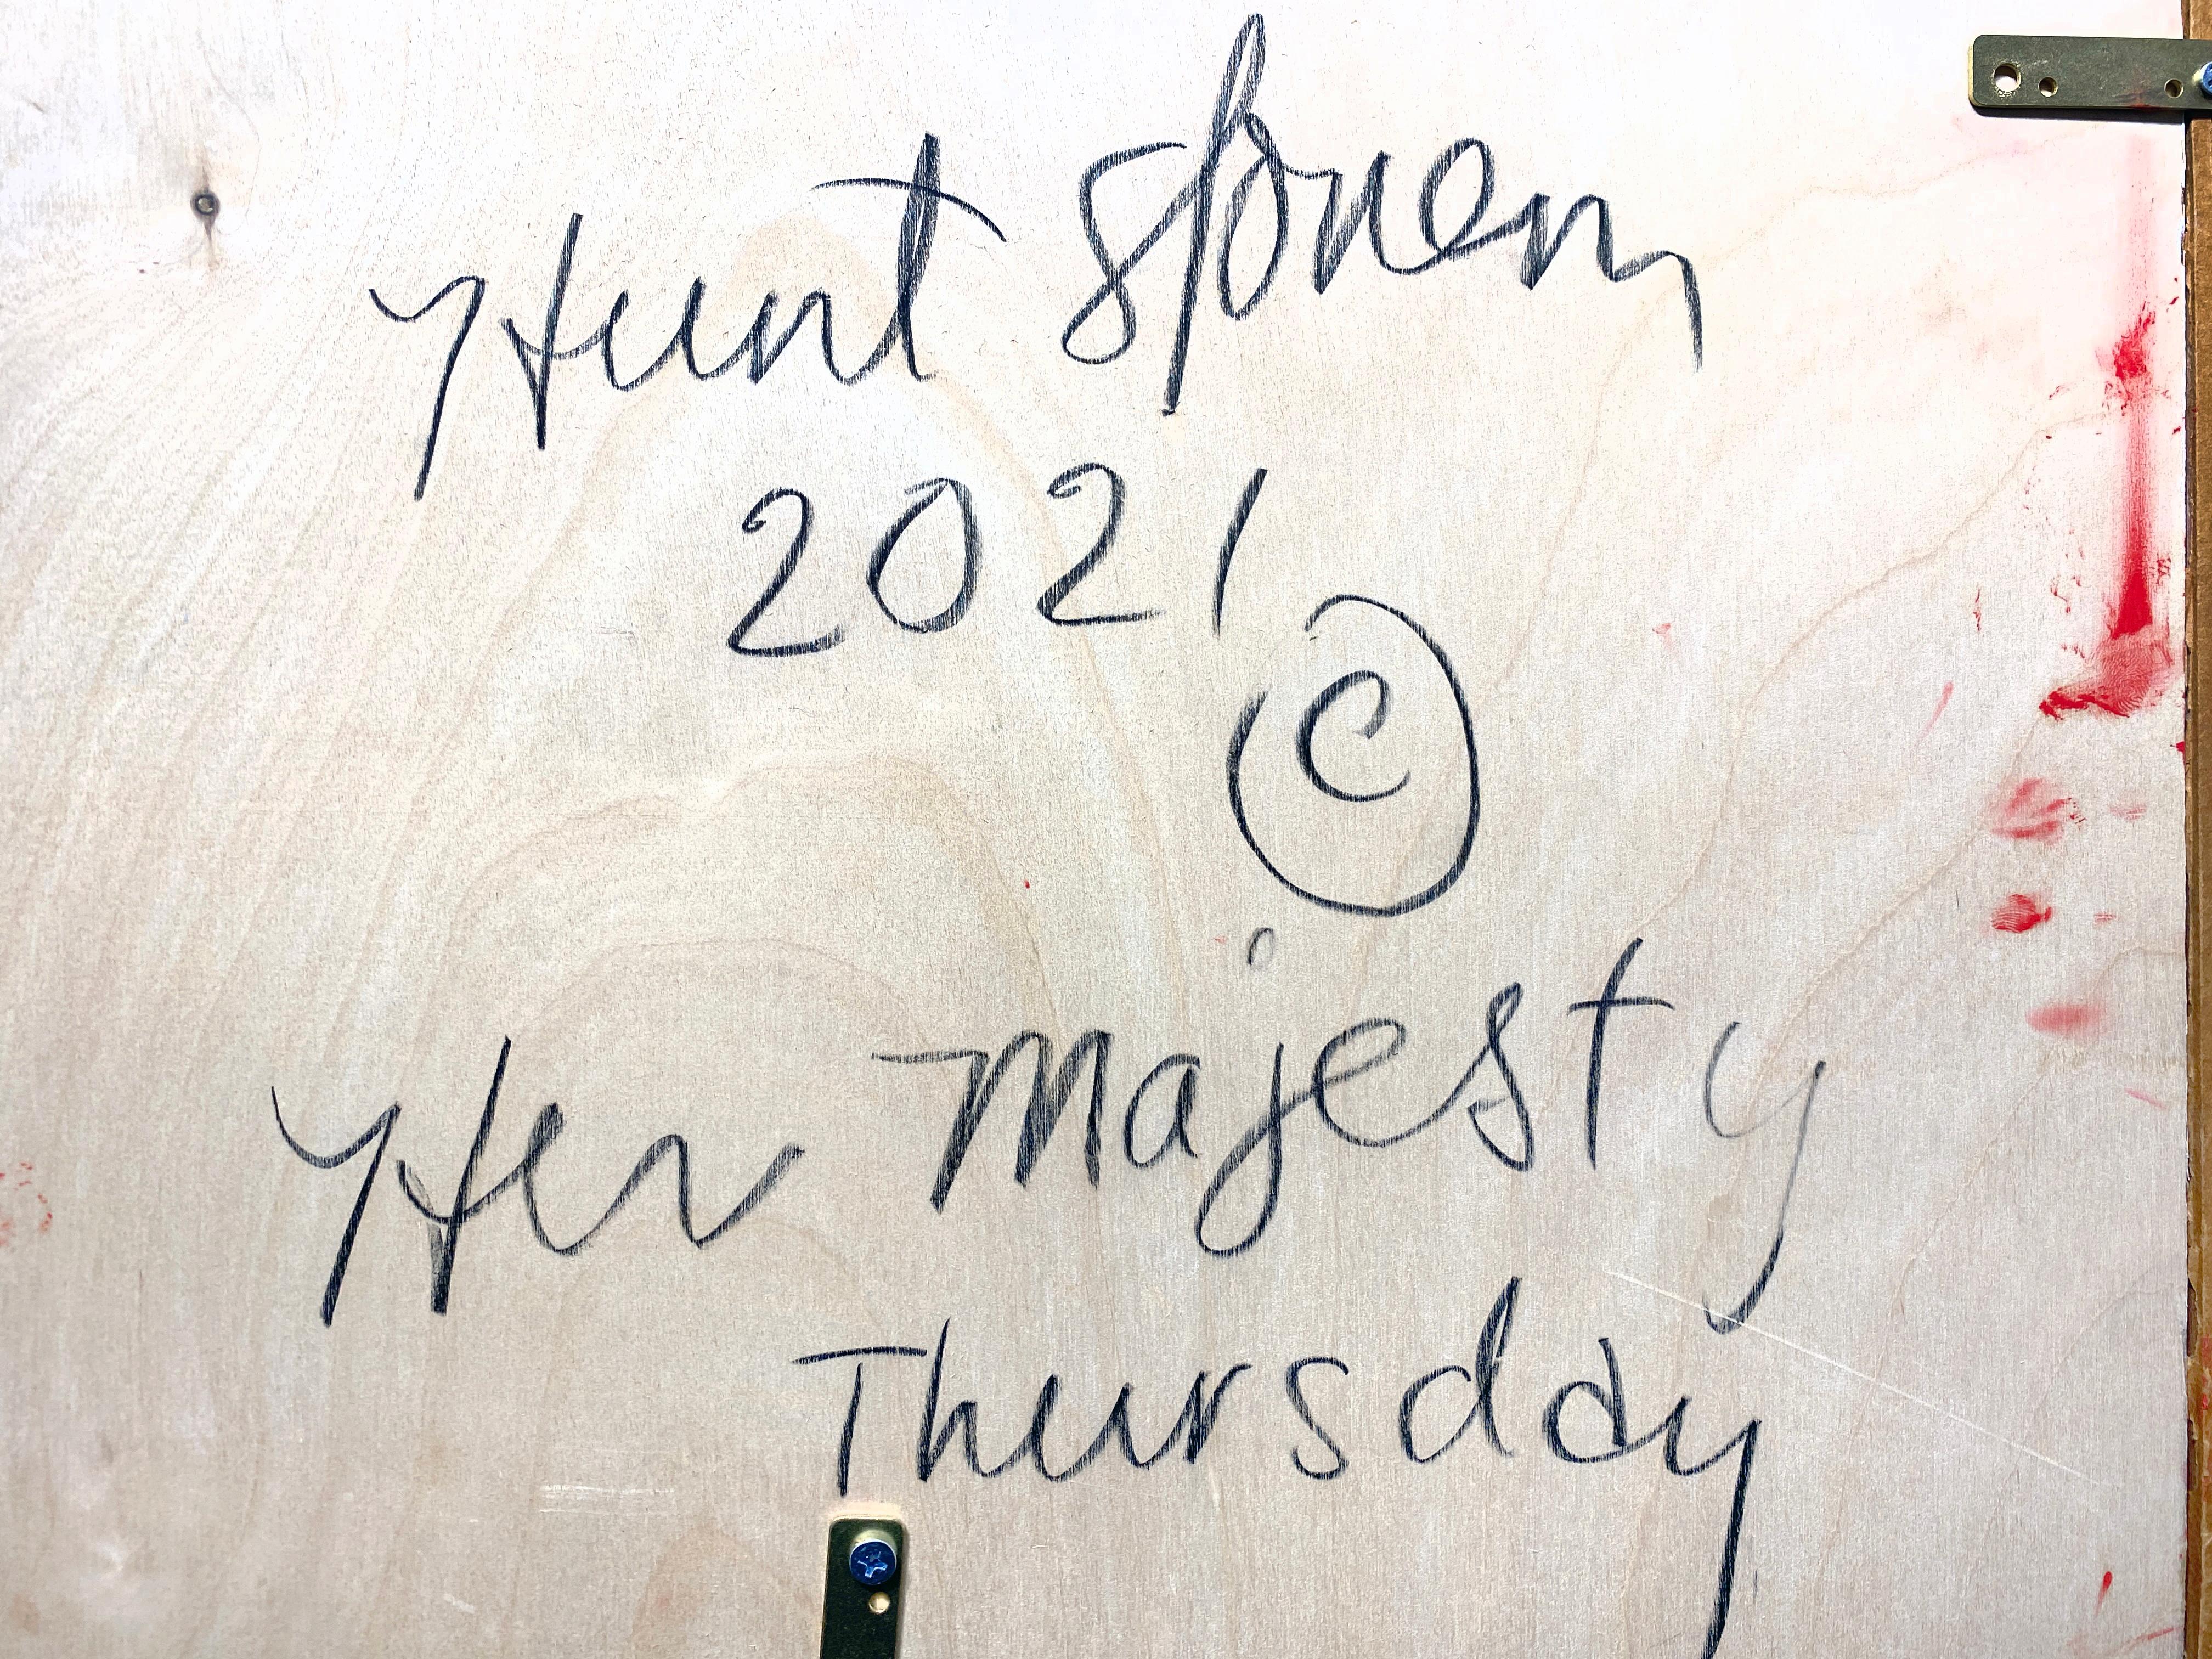 Hunt Slonem
2021
©
Her Majesty
Thursday